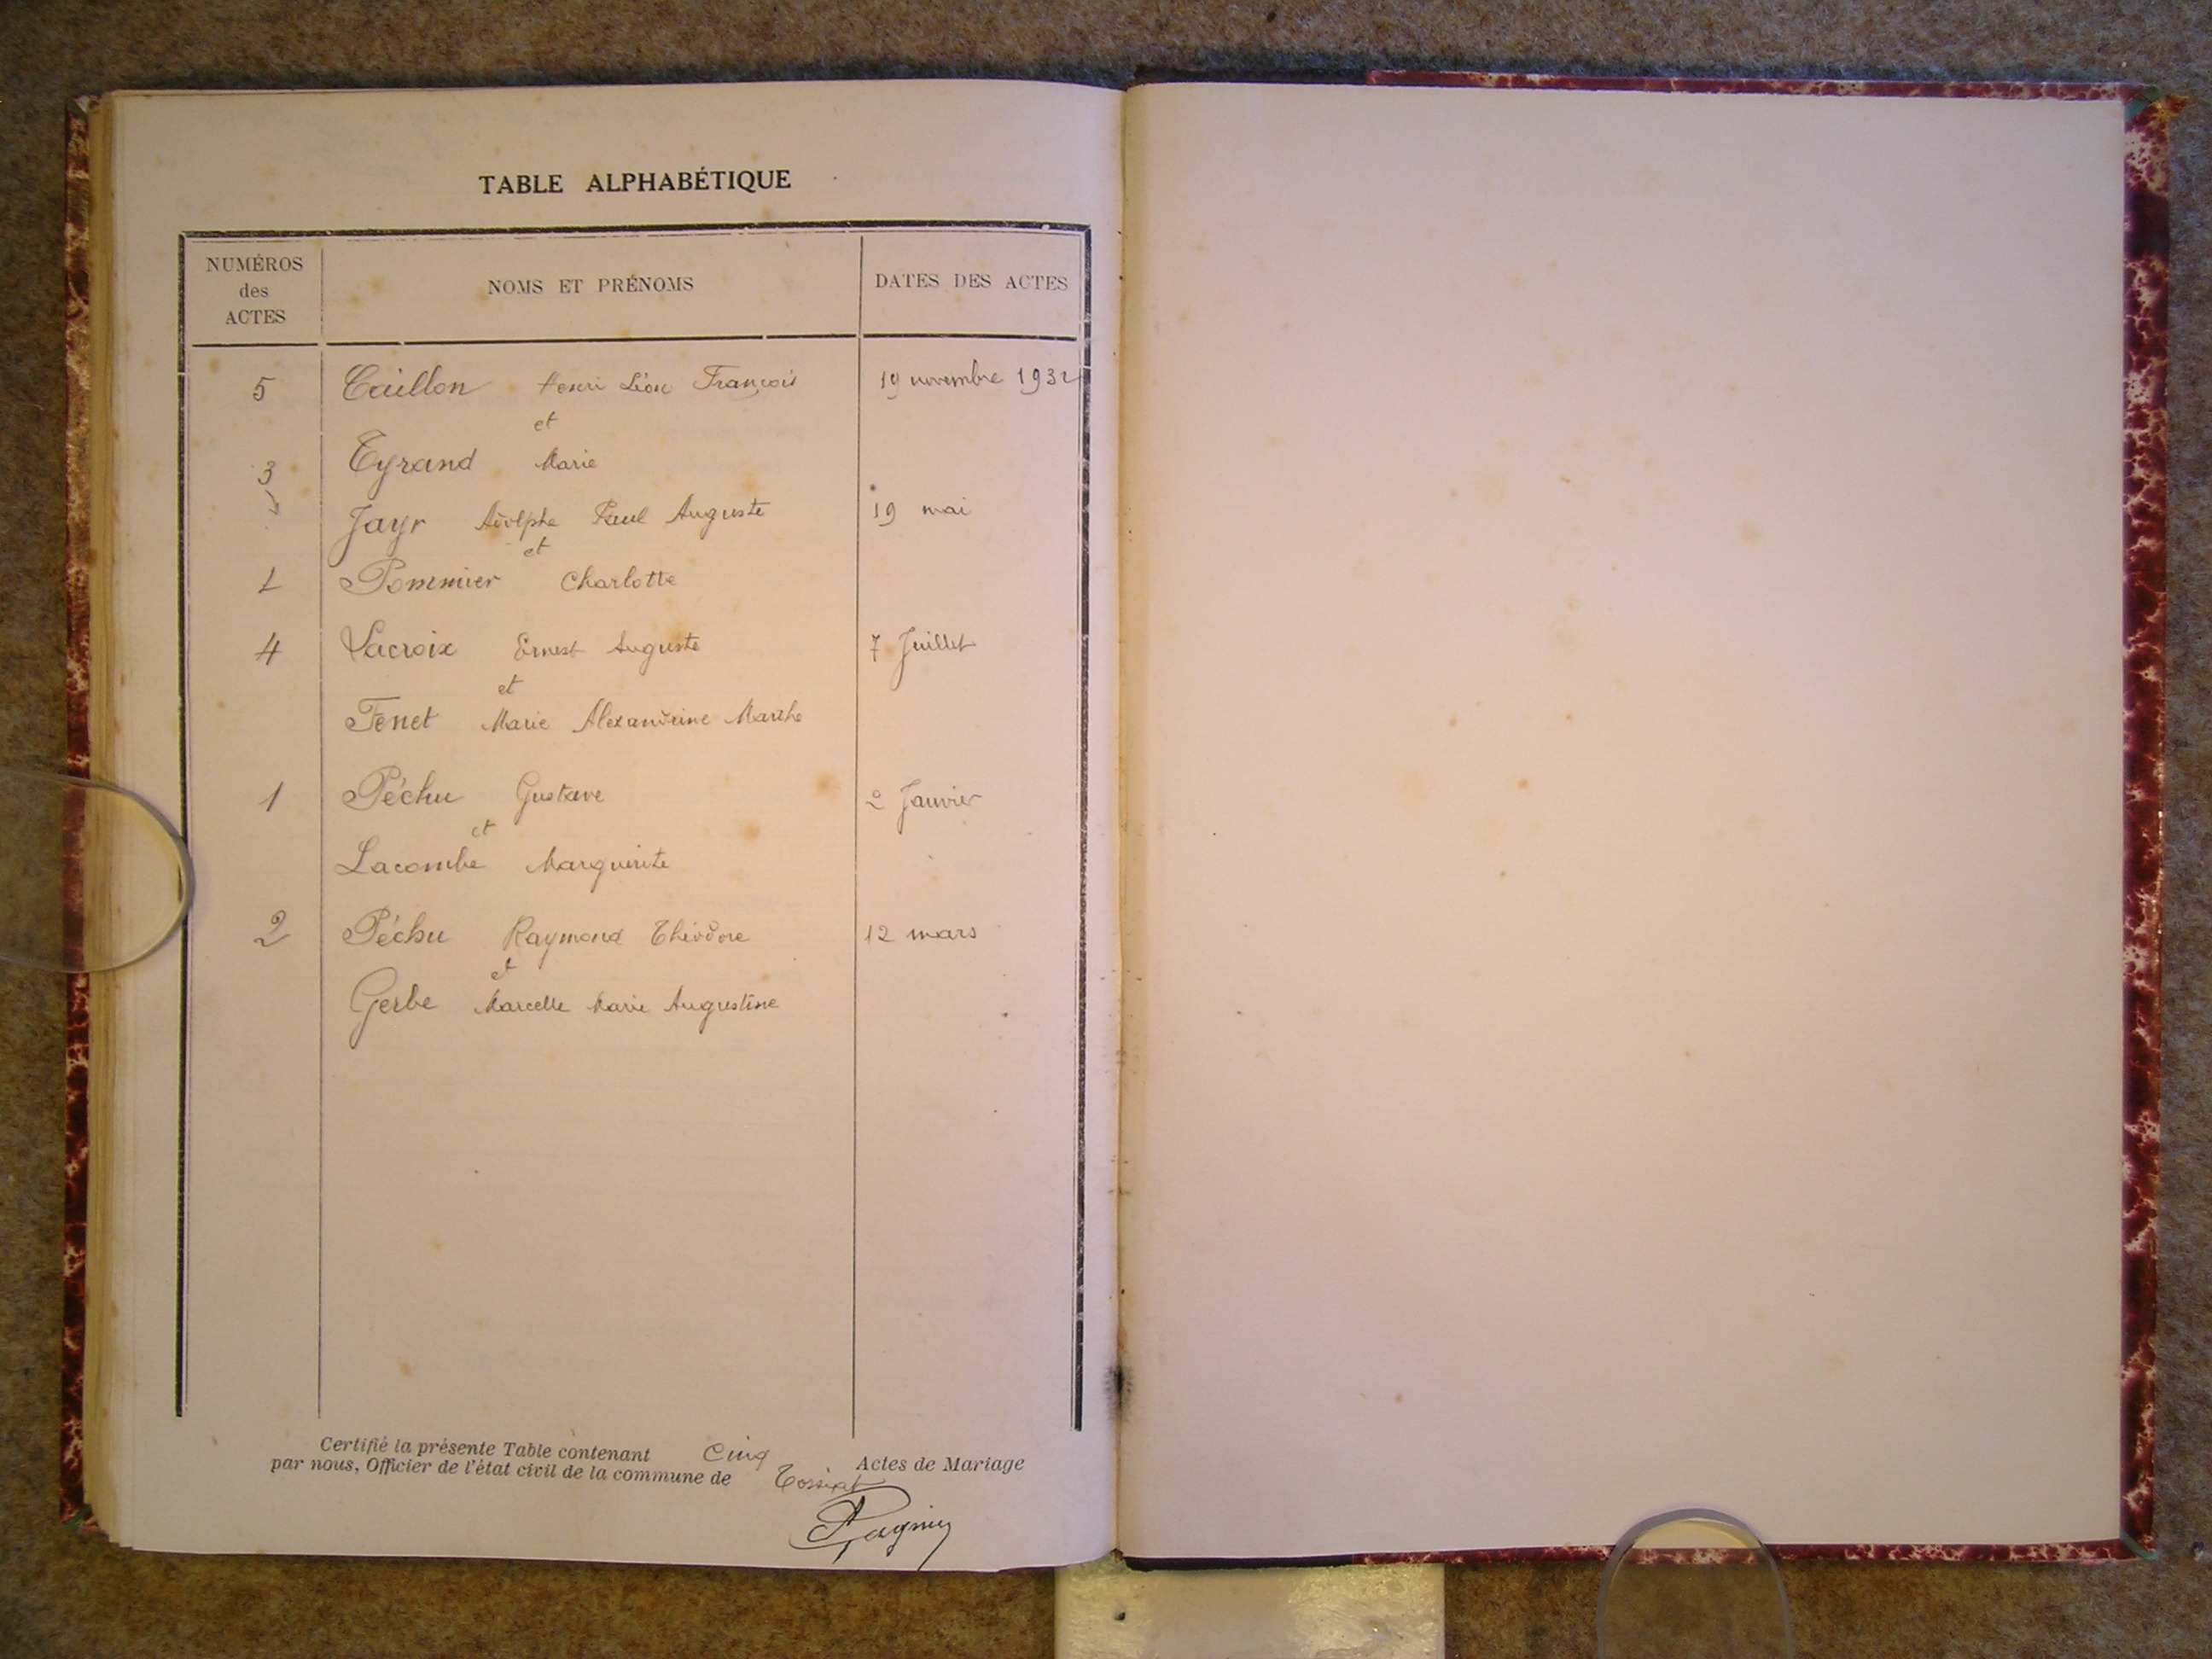 TABLE ALPHABÉTIQUE
NUMÉROS des ACTES NOMS ET PRÉNOMS DATES DES ACTES
5 Caillon Henri Léon François 19 novembre 1932
et
3 Tyrand Marie
Jayr Adolphe Paul Auguste 19 mai
et
Pommier Charlotte
4 Lacroix Ernest Auguste 7 Juillet
et
Fenet Marie Alexandrine Marthe
1 Péchu Gustave 2 Janvier
et
Lacombe Marguerite
2 Péchu Raymond Théodore 12 mars
et
Gerbe Marcelle Marie Augustine
Certifié la présente Table contenant Cinq Actes de Mariage
par nous, Officier de l'état civil de la commune de Tossiat